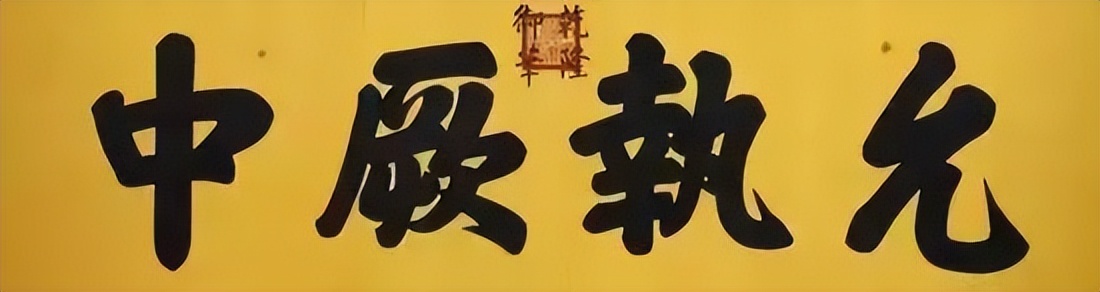 允執厥中
乾隆
御筆